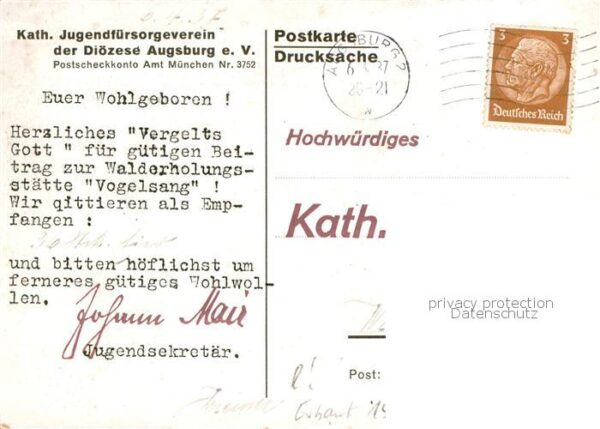 Kath. Jugendfürsorgeverein
der Diözese Augsburg e. V.
Postscheckkonto Amt München Nr. 3752
Euer Wohlgeboren !
Herzliches "Vergelts
Gott " für gütigen Bei-
trag zur Walderholungs-
stätte "Vogelsang" !
Wir qittieren als Emp-
fangen :
und bitten höflichst um
ferneres gütiges Wohlwol-
len.
Johann Mair
Jugendsekretär.
Postkarte
Drucksache
AUGSBURG 2
37
20-21
3 3
Deutsches Reich
Hochwürdiges
Kath.
privacy protection
Datenschutz
Post: